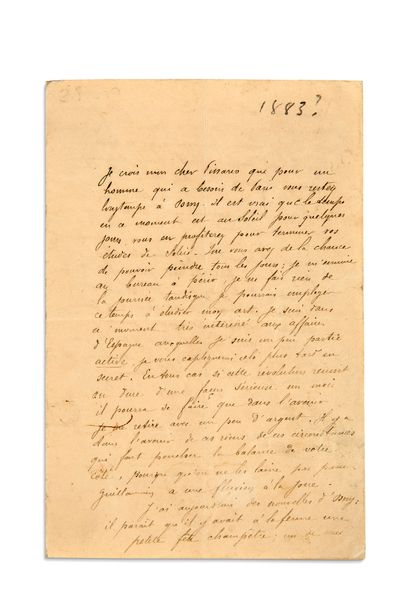 1883?
Je crois mon cher Pissaro que pour un
homme qui a besoin de vous restez
longtemps à Osny. il est vrai que le temps
en ce moment est au soleil pour quelques
jours, vous en profiterez pour terminer vos
études de soleil. Que vous avez de la chance
de pouvoir peindre tous les jours; je m'ennuie
au bureau à périr, je ne fais rien de
la journée tandisque je pourrais employer
ce temps à étudier mon art. Je suis dans
ce moment très intéressé aux affaires
d'Espagne auxquelles je suis un peu partie
active je vous expliquerai cela plus tard en
secret. En tous cas si cette révolution réussit
ou dure d'une façon sérieuse un mois
il pourra se faire que dans l'avenir
je retire avec un peu d'argent. Il y a
dans l'avenir de ces circonstances
qui font pencher la balance de votre
côté, pourvu qu'on ne les laisse pas passer
Guillaumin a une fluxion à la joue.
J'ai aujourd'hui des nouvelles d'Osny;
il paraît qu'il y avait à la ferme une
petite fête champêtre; un de mes